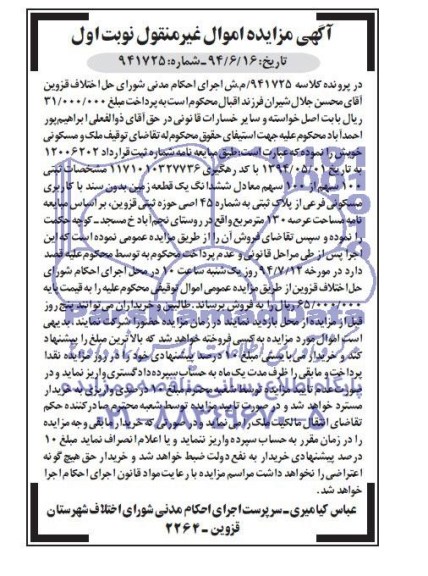 آگهی مزایده اموال غیرمنقول نوبت اول
تاریخ: ۹۴/۶/۱۶ـ شماره: ۹۴۱۷۲۵
در پرونده کلاسه ۹۴۱۷۲۵/م.ش اجرای احکام مدنی شورای حل اختلاف قزوین
آقای محسن جلال شیران فرزند اقبال محکوم است به پرداخت مبلغ ۳۱/۰۰۰/۰۰۰
ریال بابت اصل خواسته و سایر خسارات قانونی در حق آقای ذوالفعلی ابراهیم پور
احمدآباد محکوم علیه جهت استیفای حقوق محکوم له تقاضای توقیف ملک و مسکونی
خویش را نموده که عبارت است: طبق مبایعه نامه شماره ثبت قرارداد ۱۲۰۰۶۲۰۲
به تاریخ ۱۳۹۴/۰۵/۰۱ با کد رهگیری ۱۱۷۱۰۱۰۳۲۷۷۳۶ مشخصات ثبتی
۱۰۰ سهم از ۱۰۰ سهم معادل ششدانگ یک قطعه زمین بدون سند با کاربری
مسکونی فرعی از پلاک ثبتی به شماره ۴۵ اصی حوزه ثبتی قزوین، بر اساس مبایعه
نامه مساحت عرصه ۱۳۰ مترمربع واقع در روستای نجم آباد خ مسجد ـ کوچه حکمت
را نموده و سپس تقاضای فروش آن را از طریق مزایده عمومی نموده است که این
اجرا پس از طی مراحل قانونی و عدم پرداخت محکوم به توسط محکوم علیه قصد
دارد در مورخه ۹۴/۷/۱۲ روز یک شنبه ساعت ۱۰ در محل اجرای احکام شورای
حل اختلاف قزوین از طریق مزایده عمومی اموال توقیفی محکوم علیه را به قیمت پایه
۶۵/۰۰۰/۰۰۰ ریال را به فروش برساند. طالبین و خریداران می توانند پنج روز
قبل از مزایده از محل بازدید نمایند در زمان مزایده حضورا شرکت نمایند. بدیهی
است اموال مورد مزایده به کسی فروخته خواهد شد که بالاترین مبلغ را پیشنهاد
کند و خریدار می بایستی مبلغ ۱۰ درصد پیشنهادی خود را در روز مزایده نقدا
پرداخت و مابقی را ظرف مدت یک ماه به حساب سپرده دادگستری واریز نماید و در
صورت عدم تایید مزایده توسط شعبه محترم مبلغ ۱۰ درصدی واریزی به خریدار
مسترد خواهد شد و در صورت تایید مزایده توسط شعبه محترم صادرکننده حکم
تقاضای انتقال مالکیت ملک را می نماید و در صورتی که خریدار مابقی وجه مزایده
را در زمان مقرر به حساب سپرده واریز ننماید و یا اعلام انصراف نماید مبلغ ۱۰
درصد پیشنهادی خریدار به نفع دولت ضبط خواهد شد و خریدار حق هیچ گونه
اعتراضی را نخواهد داشت مراسم مزایده با رعایت مواد قانون اجرای احکام اجرا
خواهد شد.
عباس کیامیری ـ سرپرست اجرای احکام مدنی شورای اختلاف شهرستان
قزوین ـ ۲۲۶۴
ParsNamadData
۰۲۱-۸۸۳۴۹۶۷۰-۵